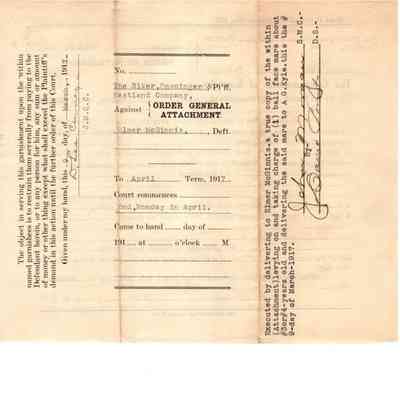 The object in serving this garnishment upon the within
named garnishees is to restrain them severally from paying to the
Defendant herein, or to any person for him, any sum or amount
of money or other writing except what shall exceed the Plaintiff's
demand in this action until the further order of this Court.
Given under my hand, this 9 day, of March, 1912
J.S.C.C.
No.
The Biker, Pl'ff.
Eastland Company,
Against
ORDER GENERAL
ATTACHMENT
Elmer McGinnis, Deft.
To April Term, 1917
Court commences
2nd, Monday in April.
Came to hand day of
191 at o'clock M
Executed by delivering to Elmer McGinnis. a true copy of the within
(Attachment) levying on and taking charge of (1) ball face mare about
3or4-years old and delivering the said mare to A G.Kyle.this the
9-day of March-1917.
John Morgan S.M.C.-
By D.S.-